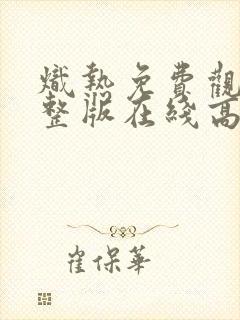 熾熱免費觀
整版在綫高
崔保華